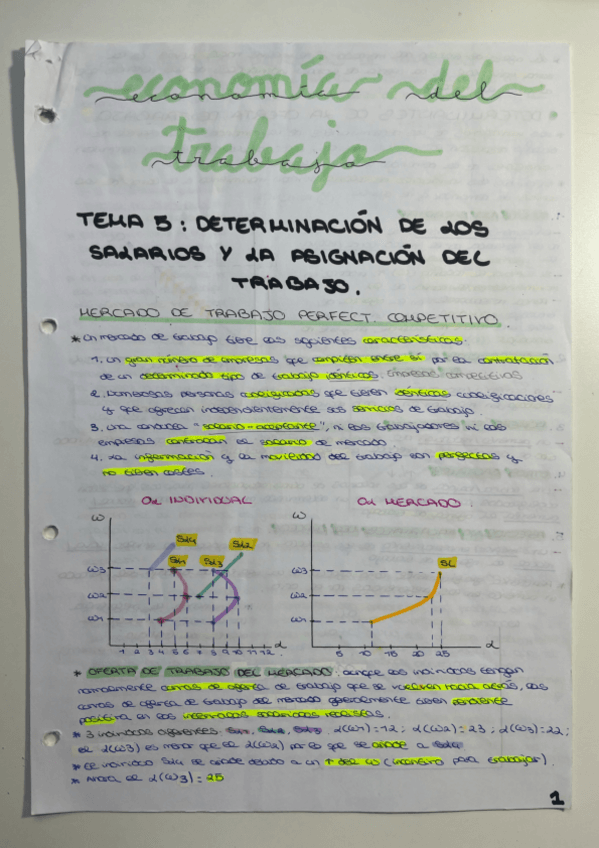 economía del
trabajo
TEMA 5: DETERMINACIÓN DE LOS
SALARIOS Y LA ASIGNACIÓN DEL
TRABAJO.
MERCADO DE TRABAJO PERFECT. COMPETITIVO.
* Un mercado de trabajo tiene las siguientes características:
1. Un gran número de empresas que compiten entre sí por la contratación
de un determinado tipo de trabajo idénticos. Empresas competitivas
2. Numerosas personas cualificadas que tienen idénticas cualificaciones
y que ofrecen independientemente sus servicios de trabajo.
3. Una conducta "salario-aceptante", ni los trabajadores ni las
empresas controlan el salario de mercado.
4. La información y la movilidad del trabajo son perfectas y
no tienen costes.
OL INDIVIDUAL
OL MERCADO
W
SL4
SL1
SL3
SL2
W3
W2
W1
1 2 3 4 5 6 7 8 9 10 11 12
L
W
SL
W3
W2
W1
5 10 15 20 25
L
* OFERTA DE TRABAJO DEL MERCADO: aunque los individuos tengan
normalmente curvas de oferta de trabajo que se vuelven hacia atrás, las
curvas de oferta de trabajo del mercado generalmente tienen pendiente
positiva en los intervalos salariales realistas.
* 3 individuos diferentes: SL1, SL2, SL3. L(W1)=12; L(W2)=23; L(W3)=22;
el L(W3) es menor que el L(W2) por eso que se añade a SL4.
* El individuo SL4 se añade debido a un ↑ del W (incentivo para trabajar).
* Ahora el L(W3)=25
1